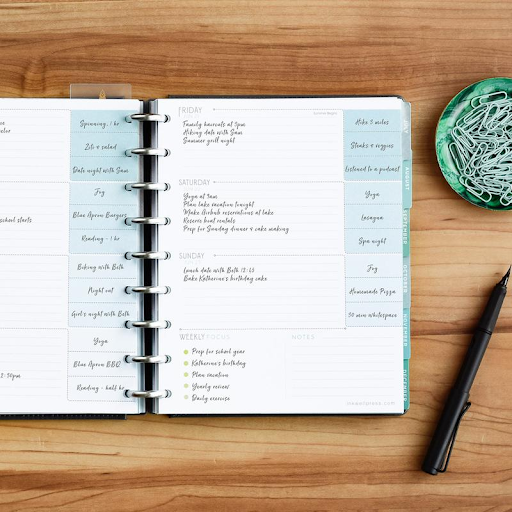 school starts
2:30pm
Spinning, 1 hr
Ziti & salad
Date night with Sam
Joy
Blue Apron Burgers
Reading - 1 hr
Biking with Beth
Night out
Girl's night with Beth
Yoga
Blue Apron BBQ
Reading - half hr
FRIDAY
Family haircuts at 5pm
Hiking date with Sam
Summer grill night
Hike 3 miles
Steaks & veggies
Listened to a podcast
SATURDAY
Yoga at 9am
Plan lake vacation tonight
Make Airbnb reservations at lake
Reserve boat rentals
Prep for Sunday dinner & cake making
Yoga
Lasagna
Spa night
SUNDAY
Lunch date with Beth
Bake Katherine's birthday cake
Joy
Homemade Pizza
30 min whitespace
WEEKLY FOCUS
Prep for school year
Katherine's birthday
Plan vacation
Yearly review
Daily exercise
NOTES
AUGUST
SEPTEMBER
OCTOBER
NOVEMBER
DECEMBER